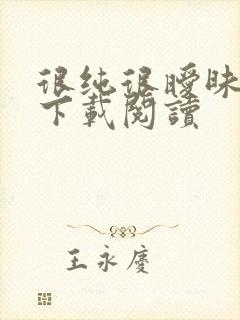 很纯很曖昧
下載閱讀
王永慶